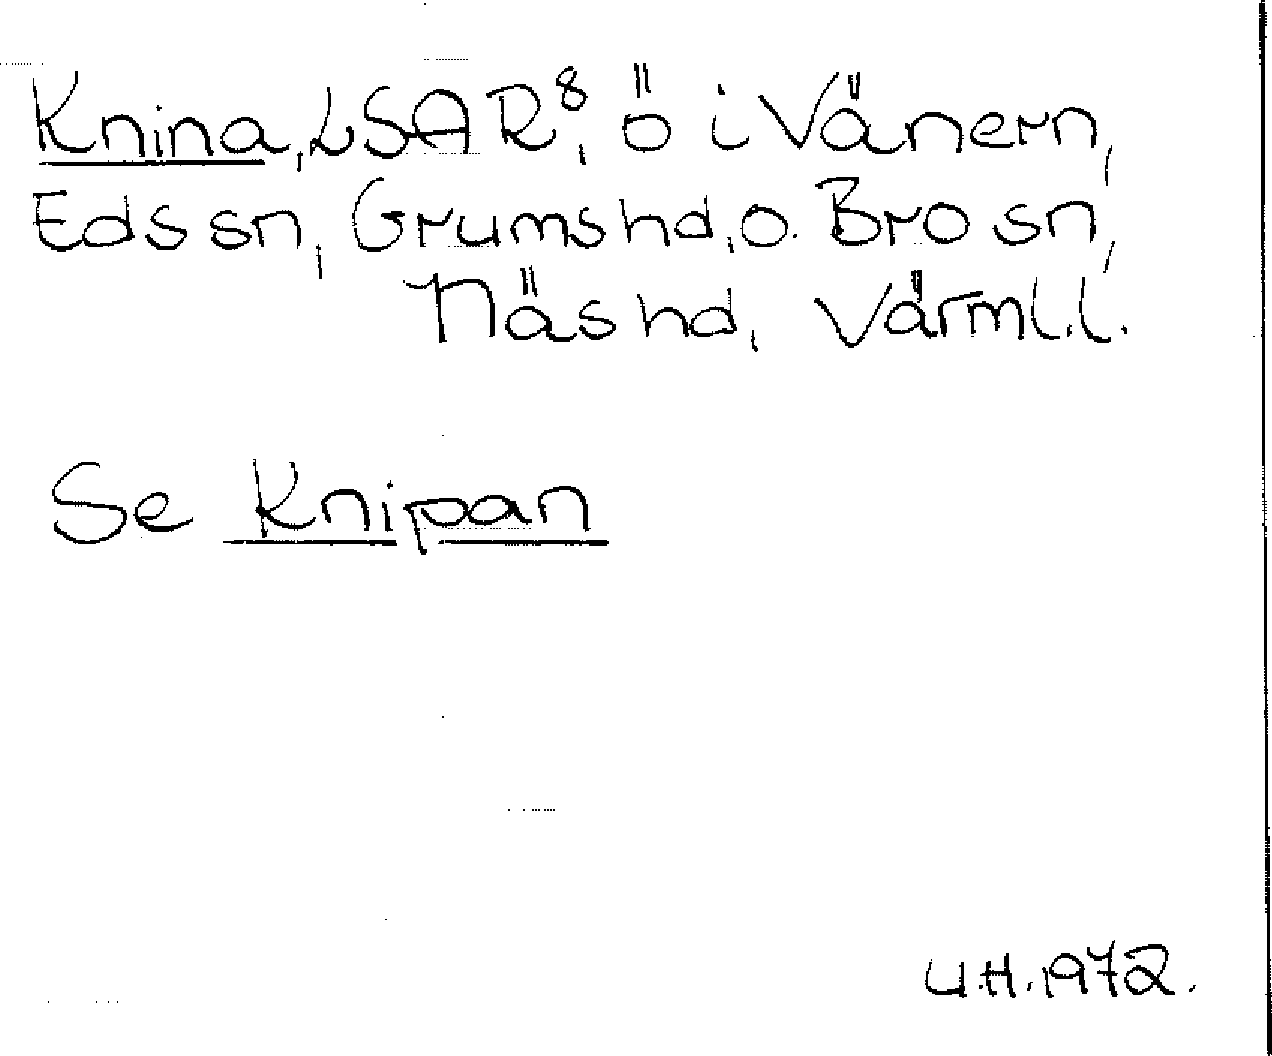 Knina, LSAR⁸, ö i Vänern,
Eds sn, Grums hd, o. Bro sn,
Näs hd, Värml.l.
Se Knipan
U.H. 1972.